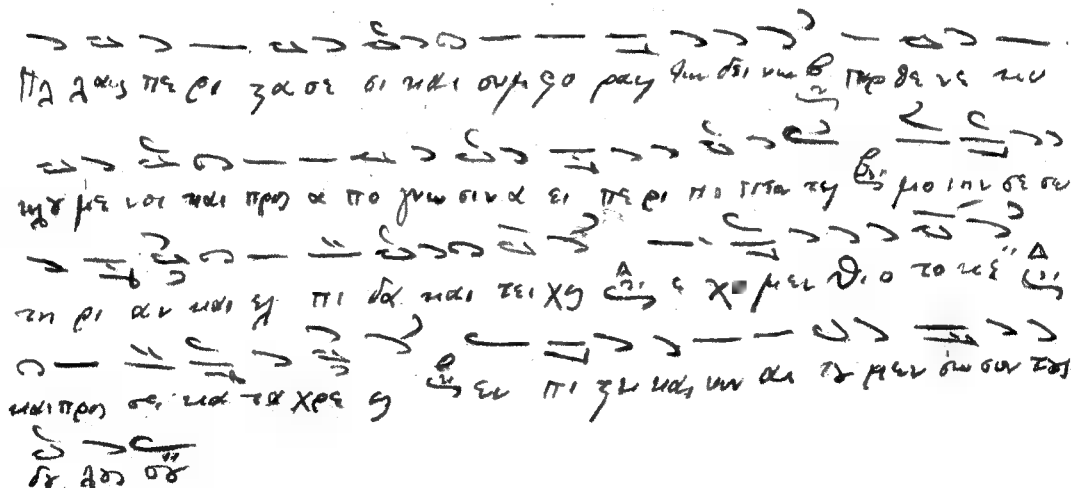 Πλ λαις πε ρι ζα σε σι και συμφο ραις των δει νων παρθε νε κυ
κλου με νοι και προς α πο γνω σιν α ει πε ρι πι πτον τες μο νην σε σω
τη ρι αν και ελ πι δα και τει χος ε χο μεν θε ο το κε
και προς σε κα τα χρε ος εν πι στει και νυν αι του μεν σω σον τους
δου λους σου